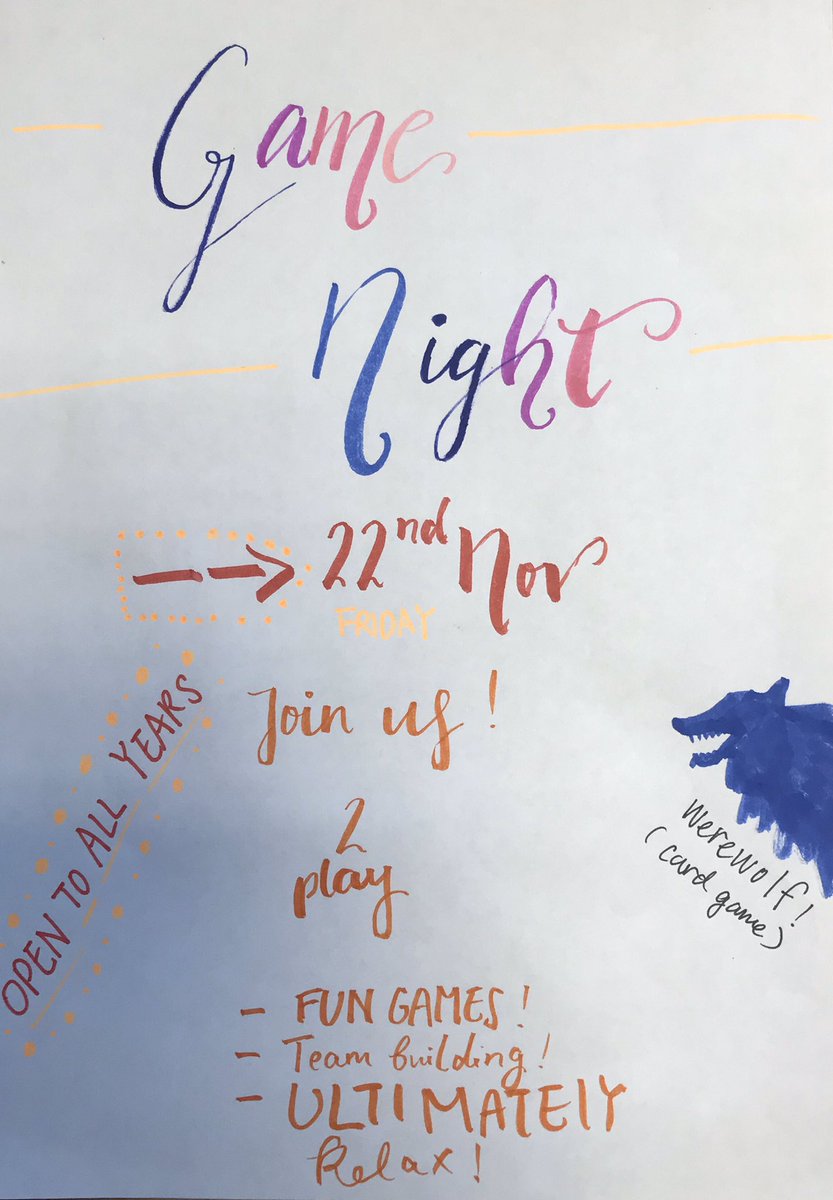 Game
Night
22nd Nov
FRIDAY
Join us!
OPEN TO ALL YEARS
2
play
Werewolf!
(card game)
- FUN GAMES!
- Team building!
- ULTIMATElY
Relax!